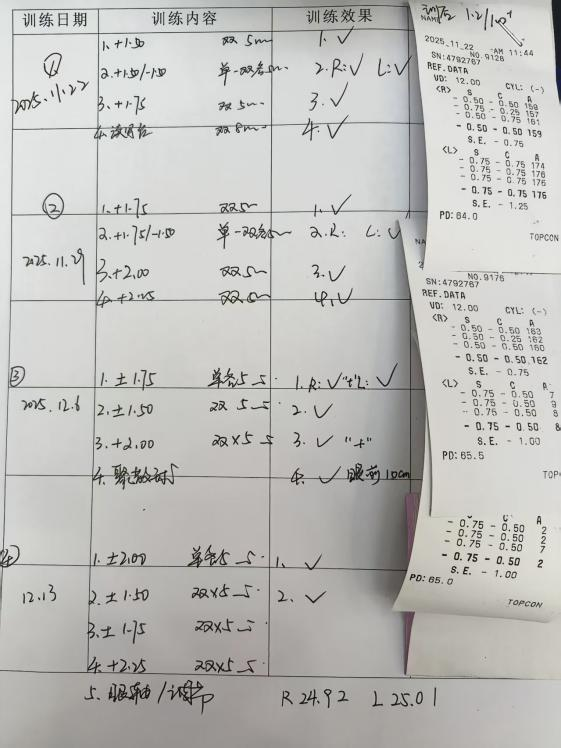 训练日期 训练内容 训练效果
① 2025.11.22
1. +1.50 双 5m 1. ✓
2. +1.50/-1.50 单-双各5m 2. R: ✓ L: ✓
3. +1.75 双 5m 3. ✓
4. 双 8m 4. ✓
② 2025.11.29
1. +1.75 双5m 1. ✓
2. +1.75/-1.50 单-双各5m 2. R: L: ✓
3. +2.00 双5m 3. ✓
4. +2.25 双5m 4. ✓
③ 2025.12.6
1. ±1.75 单各5 1. R: ✓ "+" L: ✓
2. ±1.50 双 5 2. ✓
3. +2.00 双×5 3. ✓ "+"
4. 聚散 4. ✓ 眼前10cm
④ 12.13
1. ±2.00 单各5 1. ✓
2. ±1.50 双×5 2. ✓
3. ±1.75 双×5
4. +2.25 双×5
5. 眼轴/调节 R 24.92 L 25.01
NAME 1.2/1.0+
2025_11_22 AM 11:44
SN:4792767 NO.9126
REF.DATA
VD: 12.00 CYL: (-)
<R> S C A
- 0.50 - 0.50 159
- 0.75 - 0.25 157
- 0.50 - 0.75 161
- 0.50 - 0.50 159
S.E. - 0.75
<L> S C A
- 0.75 - 0.75 174
- 0.75 - 0.75 176
- 0.75 - 0.75 176
- 0.75 - 0.75 176
S.E. - 1.25
PD: 64.0
TOPCON
NA
2
NO.9176
SN:4792767
REF.DATA
VD: 12.00 CYL: (-)
<R> S C A
- 0.50 - 0.50 163
- 0.50 - 0.25 162
- 0.50 - 0.50 160
- 0.50 - 0.50 162
S.E. - 0.75
<L> S C A
- 0.75 - 0.50 7
- 0.75 - 0.50 9
- 0.75 - 0.50 8
- 0.75 - 0.50 8
S.E. - 1.00
PD: 65.5
TOP
S C A
- 0.75 - 0.50 2
- 0.75 - 0.50 2
- 0.75 - 0.50 7
- 0.75 - 0.50 2
S.E. - 1.00
PD: 65.0
TOPCON